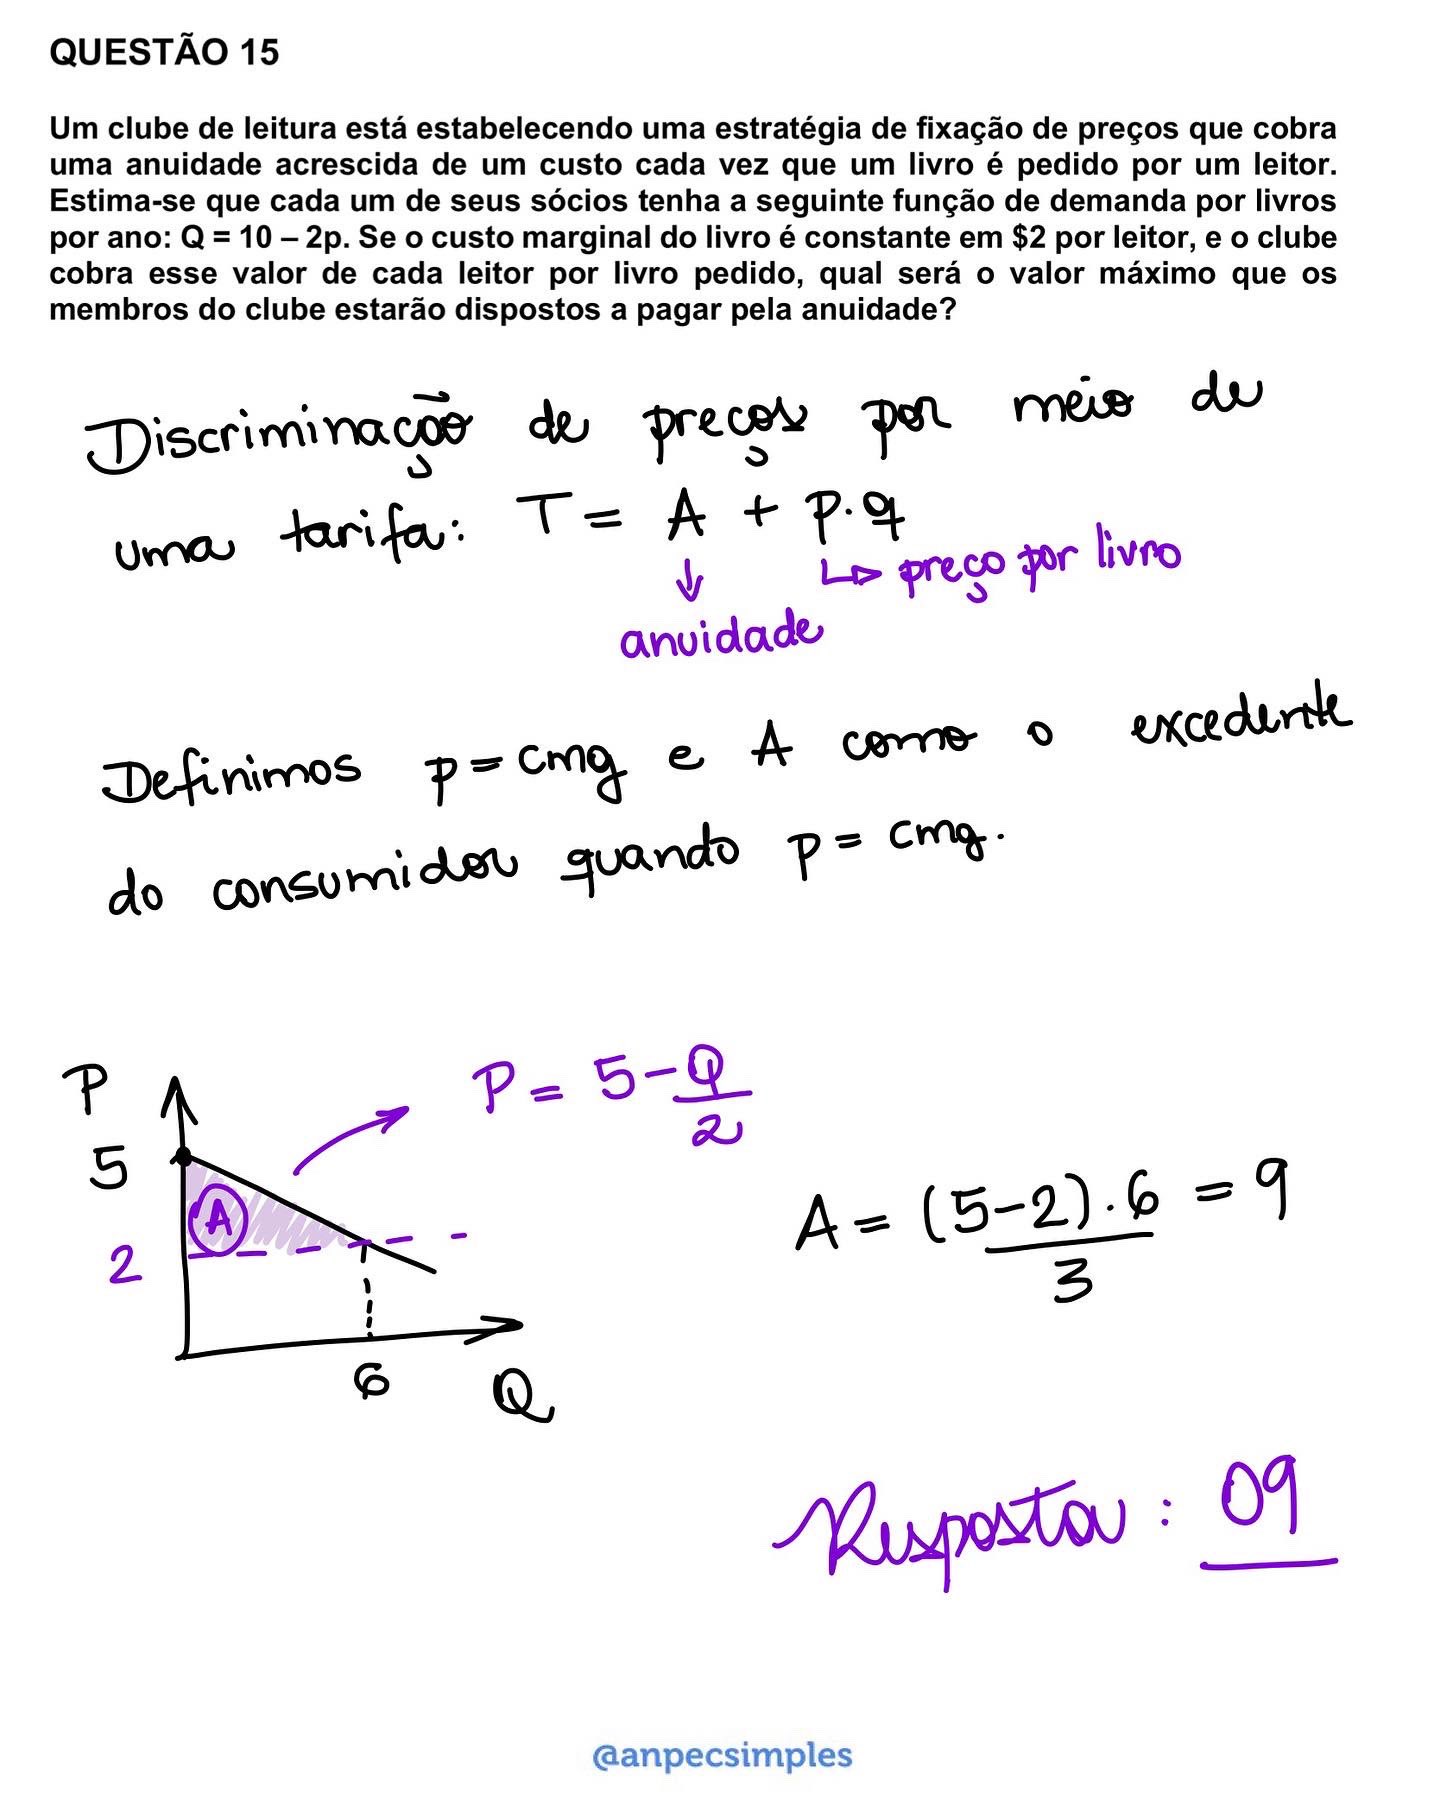 QUESTÃO 15
Um clube de leitura está estabelecendo uma estratégia de fixação de preços que cobra
uma anuidade acrescida de um custo cada vez que um livro é pedido por um leitor.
Estima-se que cada um de seus sócios tenha a seguinte função de demanda por livros
por ano: Q = 10 – 2p. Se o custo marginal do livro é constante em $2 por leitor, e o clube
cobra esse valor de cada leitor por livro pedido, qual será o valor máximo que os
membros do clube estarão dispostos a pagar pela anuidade?
Discriminação de preços por meio de
uma tarifa: T = A + p.q
↓ ↳ preço por livro
anuidade
Definimos p = cmg e A como o excedente
do consumidor quando p = cmg.
P
P = 5 - Q/2
5
A
2
6
Q
A = (5-2).6/3 = 9
Resposta: 09
@anpecsimples